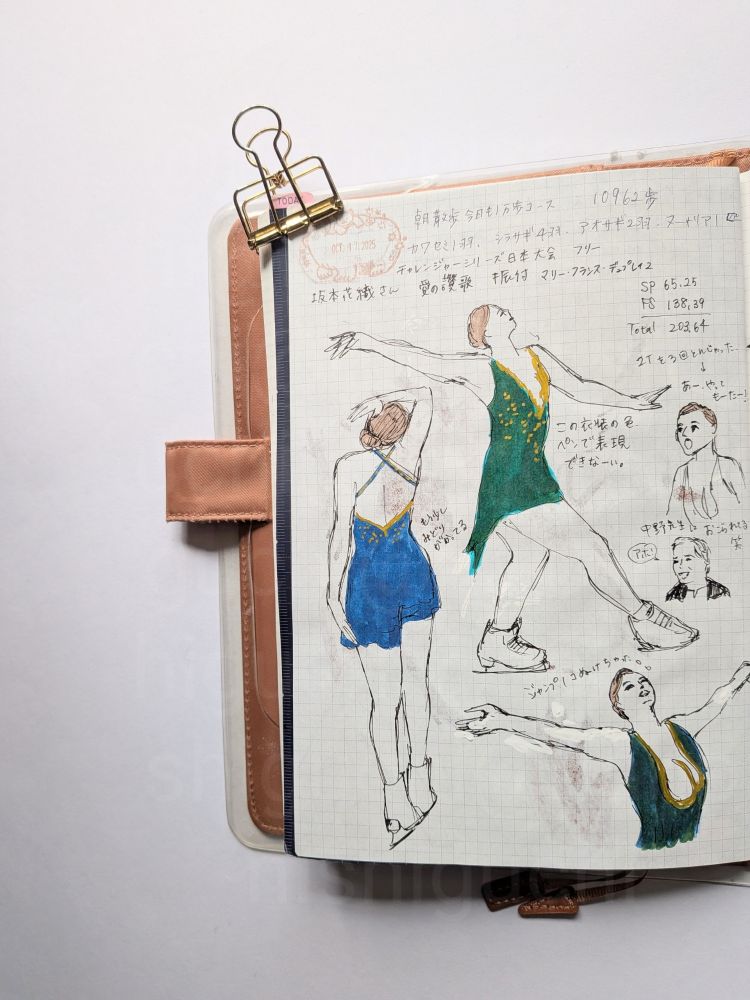 TODAY
OCT 2025
朝散歩 今日も1万歩コース 10962歩
カワセミ1羽、シラサギ4羽、アオサギ2羽、ヌートリア1匹
チャレンジャーシリーズ日本大会 フリー
坂本花織さん 愛の讃歌 振付 マリー・フランス・デュブレイユ
SP 65.25
FS 138.39
Total 203.64
2Tを3回とんじゃった
↓
あー、やって
もーたー!
この衣装の色
ペンで表現
できなーい。
もう少し
みどり
がかってる
中野先生に おこられる
笑
アホ!
ジャンプ1コぬけちゃった。。